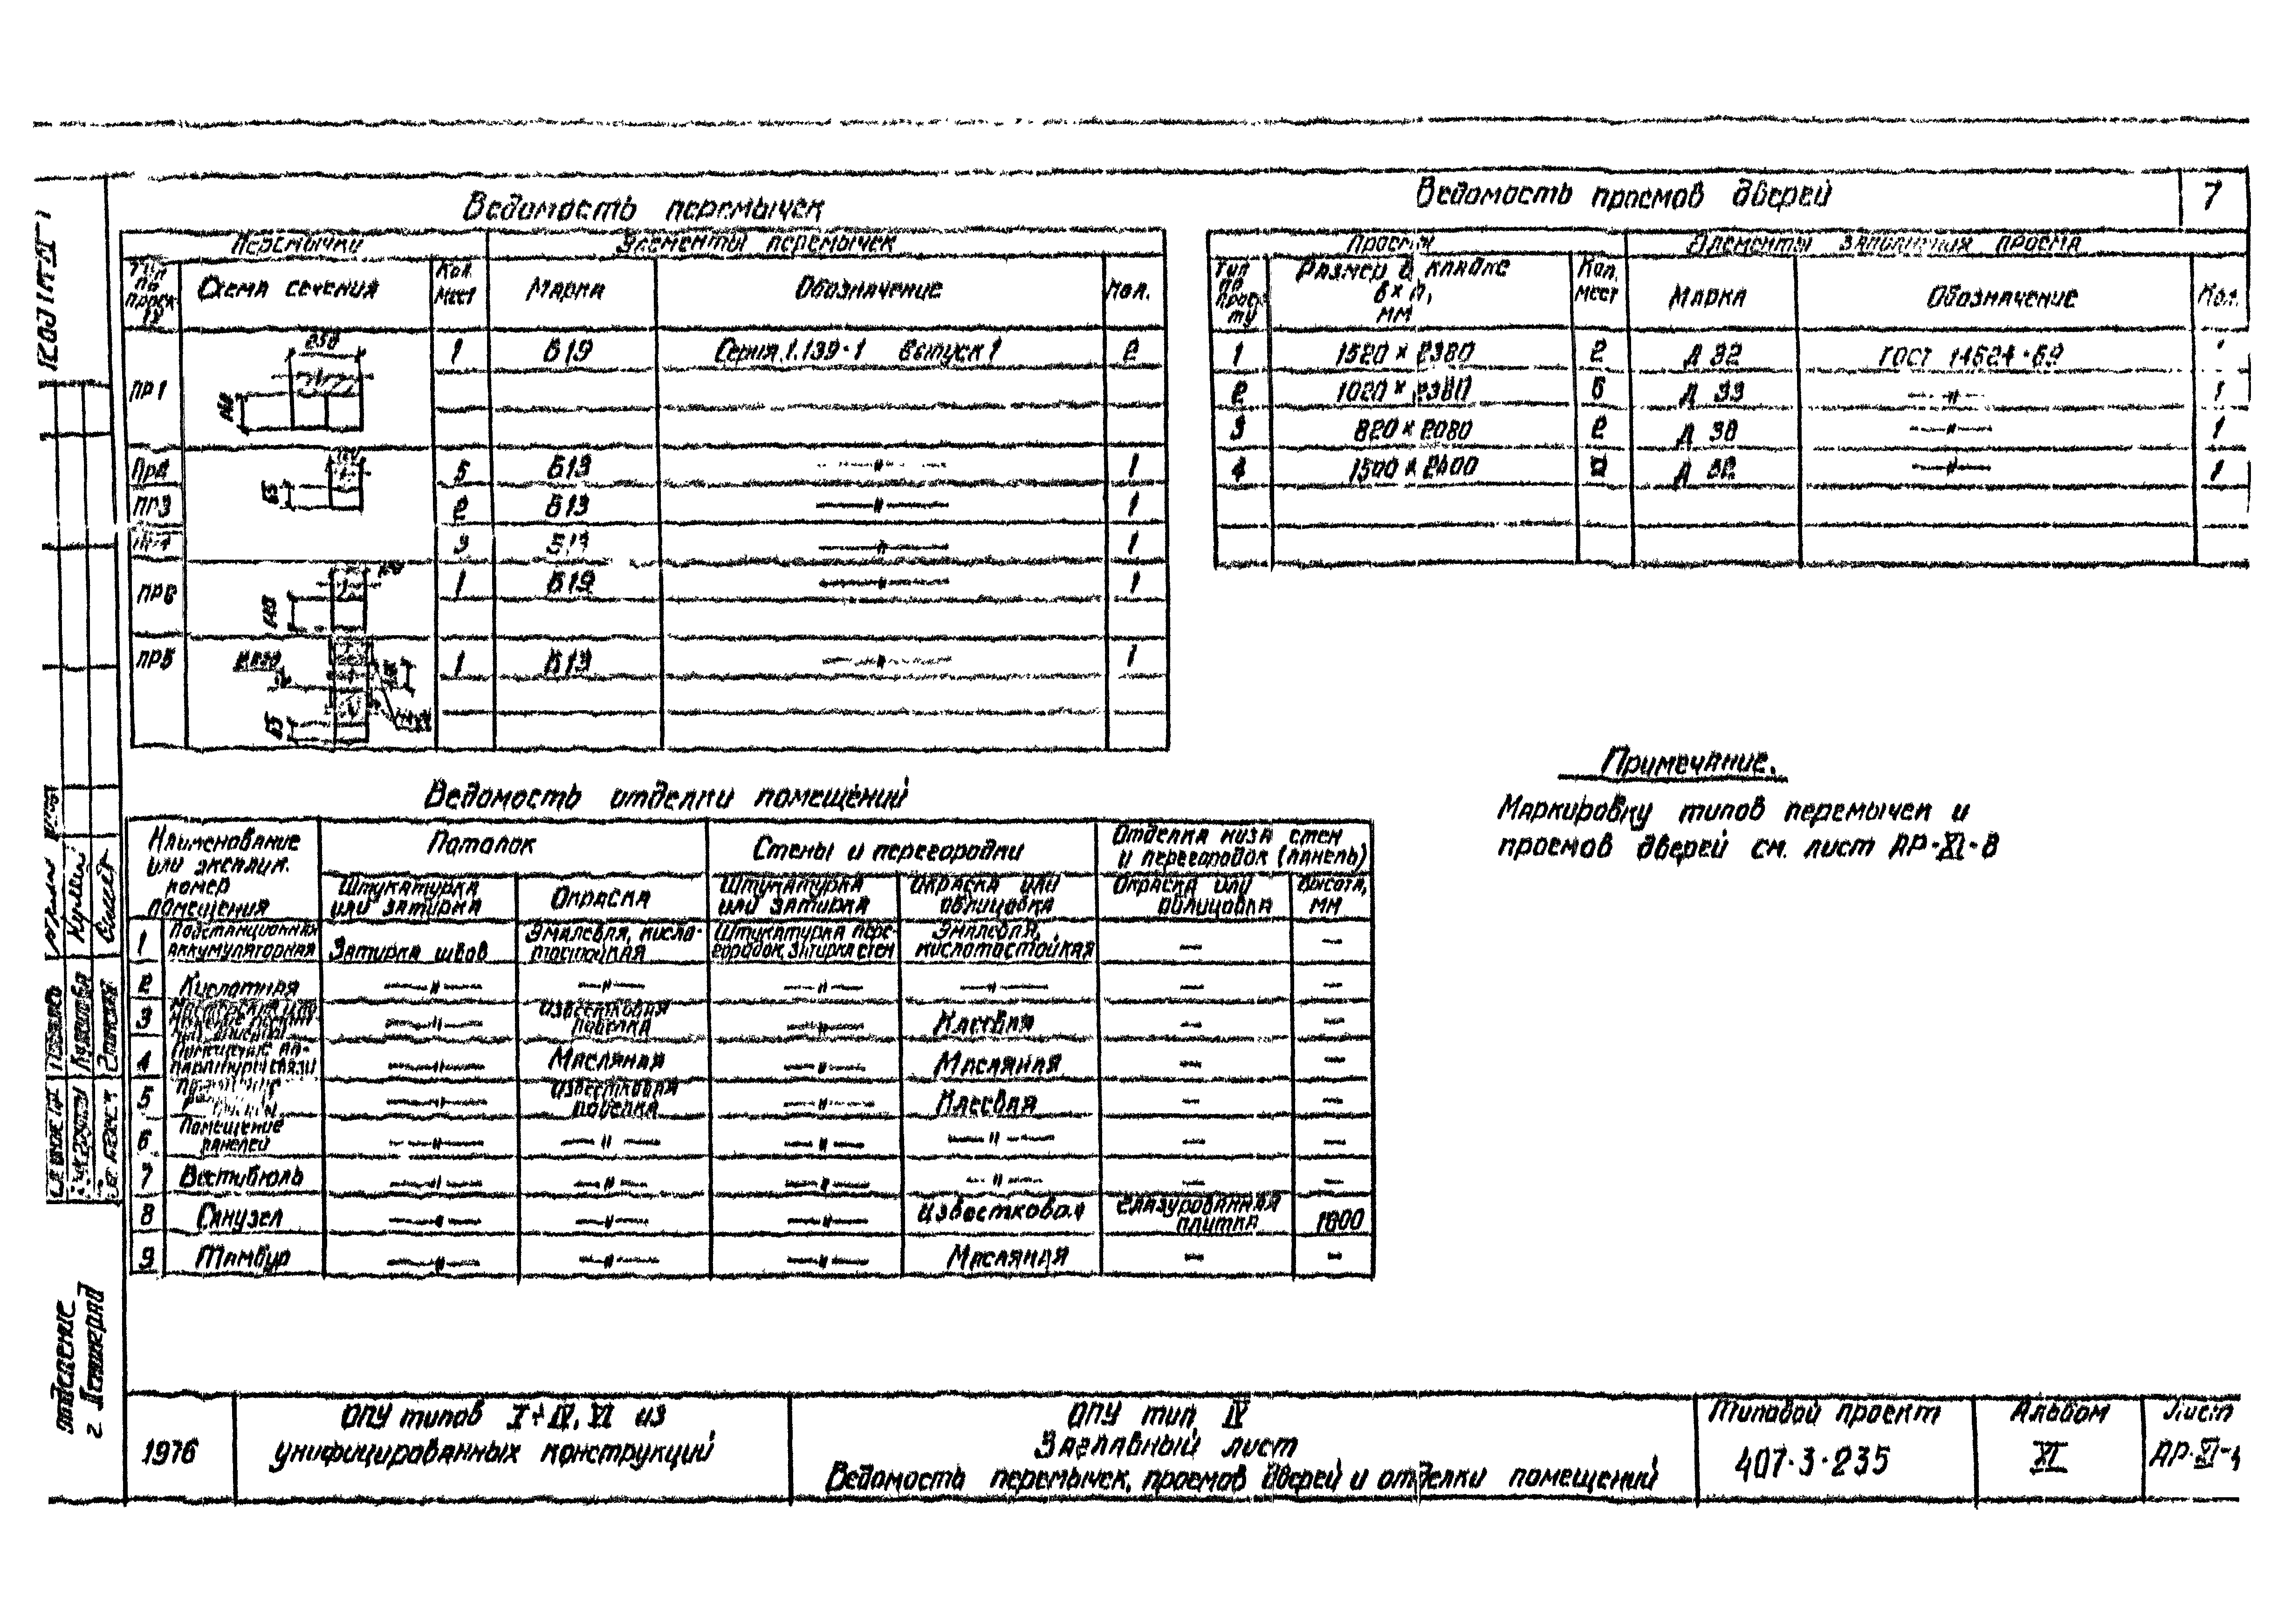 7
Ведомость перемычек
Перемычки
Элементы перемычек
Тип по проекту
Схема сечения
Кол. мест
Марка
Обозначение
Кол.
ПР1
250
1
Б19
Серия 1.139-1 Выпуск 1
2
5
Б13
—"—
1
ПР3
2
Б13
—"—
1
3
—"—
1
ПР6
140
1
Б19
—"—
1
ПР5
1
Б13
—"—
1
Ведомость проемов дверей
Элементы заполнения проема
Тип по проекту
Размер в кладке
в×h,
мм
Кол. мест
Марка
Обозначение
Кол.
1
1520×2380
2
Д 32
ГОСТ 14624-69
2
1020×2380
Д 33
—"—
1
3
820×2080
2
Д 30
—"—
1
4
1500×2400
Д 32
—"—
1
Примечание.
Маркировку типов перемычек и
проемов дверей см. лист АР-XI-8
Ведомость отделки помещений
Наименование
или эксплик.
номер
помещения
Потолок
Стены и перегородки
Отделка низа стен
и перегородок (панель)
Штукатурка
или затирка
Окраска
Штукатурка
или затирка
Окраска или
облицовка
Окраска или
облицовка
Высота,
мм
1
Подстанционная
аккумуляторная
Затирка швов
Эмалевая, кисло-
тостойкая
Штукатурка пере-
городок, затирка стен
Эмалевая,
кислотостойкая
—
—
2
Кислотная
—"—
—"—
—"—
—"—
—
—
3
—"—
Известковая
побелка
—"—
Клеевая
—
—
4
Помещение ап-
паратуры связи
—"—
Масляная
—"—
Масляная
—
—
5
—"—
Известковая
побелка
—"—
Клеевая
—
—
6
Помещение
панелей
—"—
—"—
—"—
—"—
—
—
7
Вестибюль
—"—
—"—
—"—
—"—
—
—
8
Санузел
—"—
—"—
—"—
Известковая
Глазурованная
плитка
9
Тамбур
—"—
—"—
—"—
Масляная
—
—
отделение
г. Ленинград
1976
ОПУ типов I÷IV, VI из
унифицированных конструкций
ОПУ тип IV
Заглавный лист
Ведомость перемычек, проемов дверей и отделки помещений
Типовой проект
407-3-235
Альбом
XI
Лист